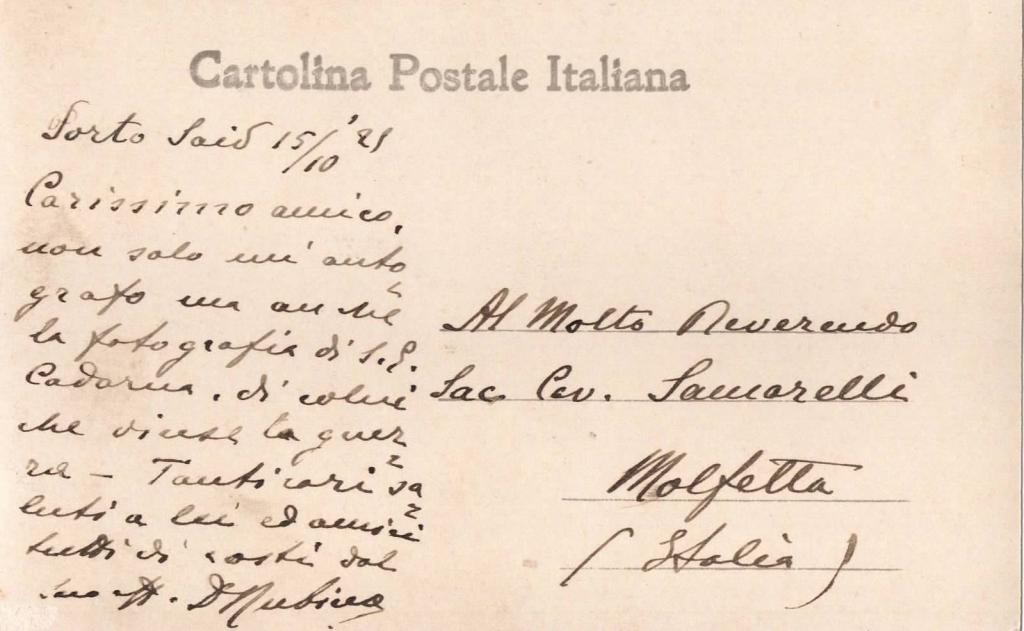 Cartolina Postale Italiana
Porto Said 15/10 '21
Carissimo amico,
non solo un' auto
grafo ma anche
la fotografia di S.E.
Cadorna, di colui
che vinse la guer
ra – Tanti cari sa
luti a lei ed amici
tutti di costì dal
suo aff. D Rubino
Al Molto Reverendo
Sac. Cav. Samarelli
Molfetta
(Italia)